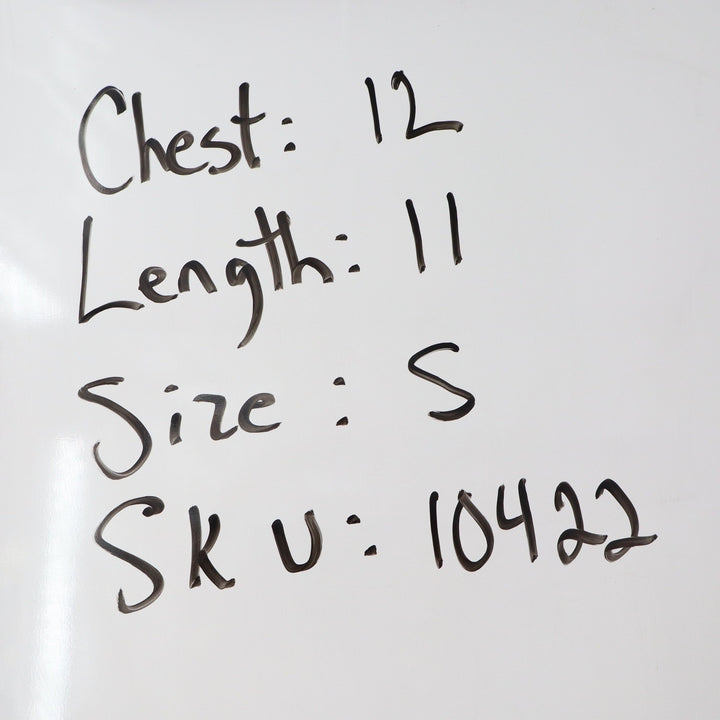 Chest: 12
Length: 11
Size: S
SKU: 10422